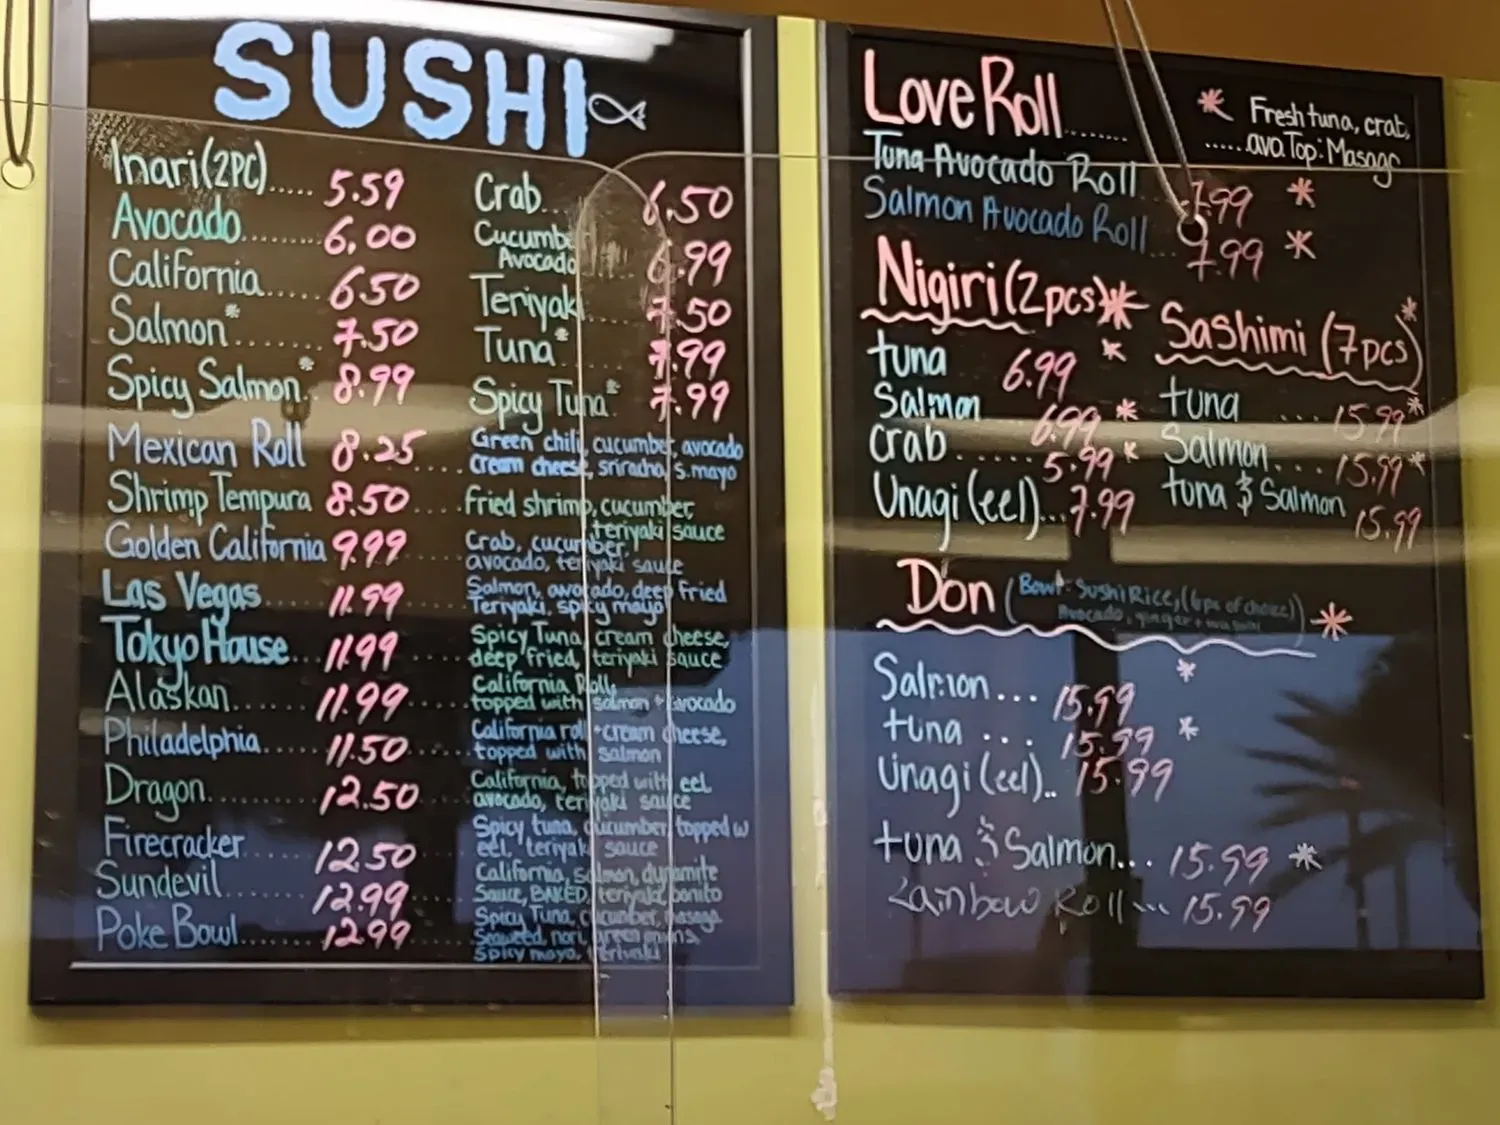 SUSHI
Inari (2PC)..... 5.59
Avocado........ 6.00
California..... 6.50
Salmon*....... 7.50
Spicy Salmon*.. 8.99
Crab... 6.50
Cucumber
Avocado 6.99
Teriyaki 7.50
Tuna* 7.99
Spicy Tuna* 7.99
Mexican Roll 8.25.... Green chili, cucumber, avocado
cream cheese, sriracha, s.mayo
Shrimp Tempura 8.50.... fried shrimp, cucumber,
teriyaki sauce
Golden California 9.99.... Crab, cucumber,
avocado, teriyaki sauce
Las Vegas.... 11.99.... Salmon, avocado, deep fried
Teriyaki, spicy mayo
Tokyo House... 11.99.... Spicy Tuna, cream cheese,
deep fried, teriyaki sauce
Alaskan....... 11.99.... California Roll,
topped with salmon + avocado
Philadelphia..... 11.50.... California roll + cream cheese,
topped with salmon
Dragon........ 12.50.... California, topped with eel
avocado, teriyaki sauce
Firecracker.... 12.50.... Spicy tuna, cucumber, topped w
eel, teriyaki sauce
Sundevil...... 12.99.... California, salmon, dynamite
Sauce, BAKED, teriyaki, bonito
Poke Bowl....... 12.99.... Spicy Tuna, cucumber, masago
Seaweed, nori, green onions,
Spicy mayo, teriyaki
Love Roll........ * Fresh tuna, crab,
......ava.Top: Masago
Tuna Avocado Roll 7.99 *
Salmon Avocado Roll... 7.99 *
Nigiri (2pcs)*
tuna 6.99 *
Salmon 6.99 *
Crab...... 5.99 *
Unagi (eel)... 7.99
Sashimi (7pcs) *
tuna ... 15.99 *
Salmon.... 15.99 *
tuna & Salmon 15.99
Don (Bowl: Sushi Rice, (6pc of choice)
Avocado, ginger + wasabi) *
Salmon... 15.99 *
tuna ... 15.99 *
Unagi (eel).. 15.99
tuna & Salmon... 15.99 *
Rainbow Roll... 15.99